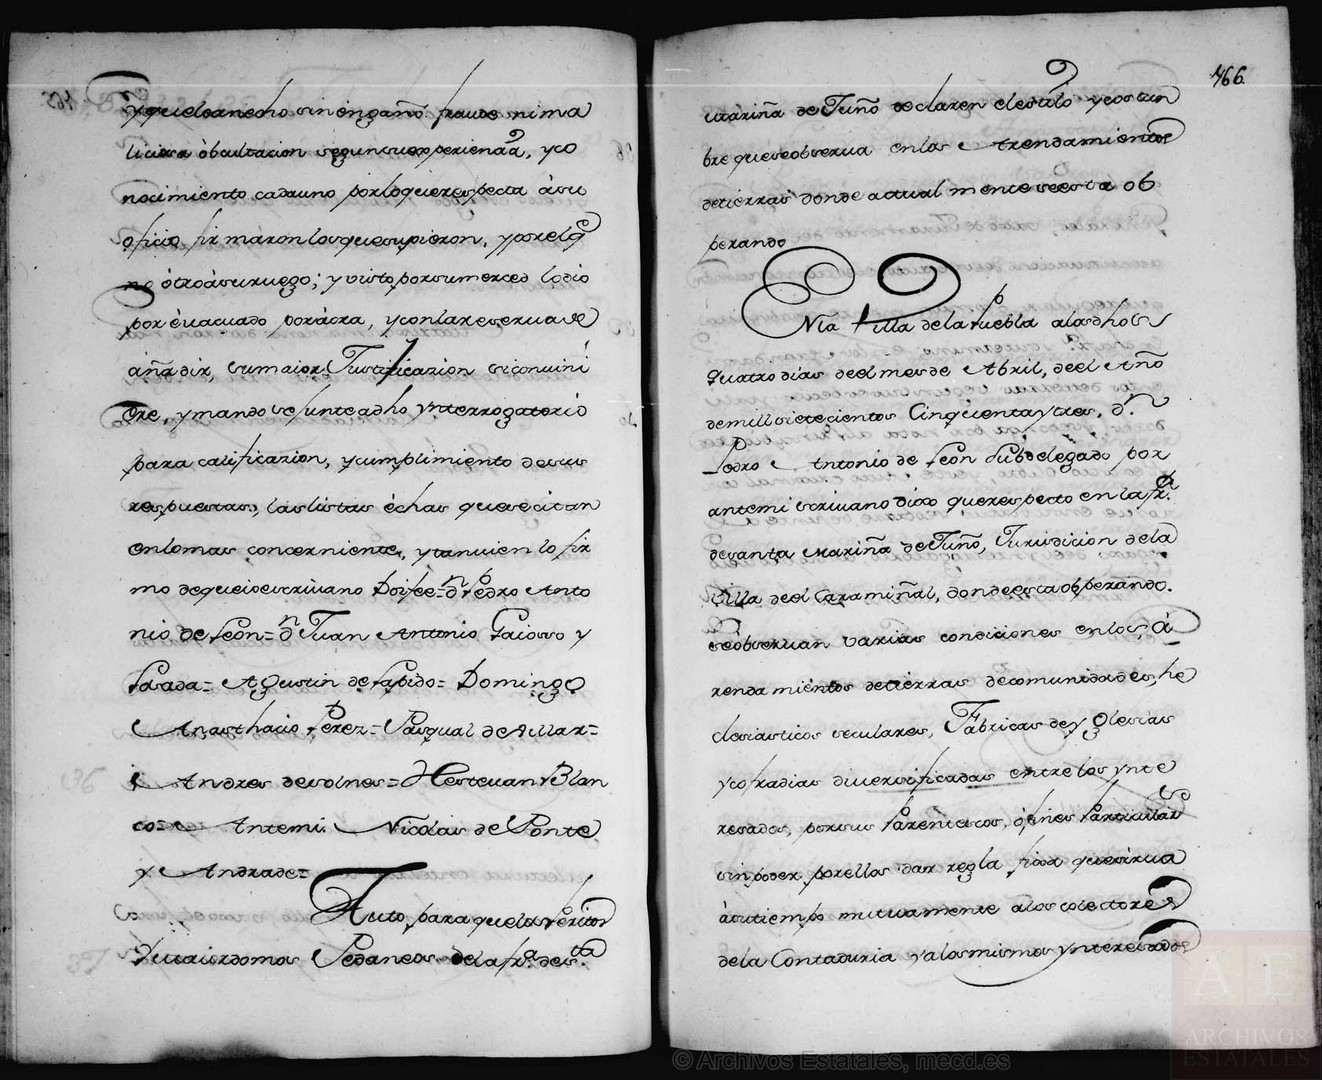 y que lo an echo sin engaño fraude ni ma
liciosa obcultacion segun su experienzia, y co
nocimiento cada uno por lo que respecta à su
oficio, firmaron los que supieron, y por el q.e
no otro à su ruego; y visto por su merced lo dio
por évacuado por àora, y con la reserua de
àñadir, su maior Justificazion si conuini
ere, y mando se junte a dho ynterrogatorio
para calificazion, y cumplimiento de sus
respuestas, las listas échas que se citan
en lo mas concerniente, y tanuien lo fir
mo de que io escriuano Doi fee= dn. Pedro Anto
nio de Leon= dn. Juan Antonio Gaioso y
Posada= Agustin de Lapido= Domingo
Anasthacio Perez= Pasqual de Villar=
Andres de solnes= Hesteuan Blan
co= Antemi Nicolas de Ponte
y Andrade=
Auto, para que los Peritos
Maiordomos Pedaneos de la fra. de Sta.
466
Mariña de Juño declaren el estilo y costum
bre que se obserua en los Arrendamientos
de tierras donde actualmente se esta ob
perando
En la Villa de la Puebla a los dhos
quatro dias de el mes de Abril, de el Año
de mill sietecientos Cinquenta y tres, dn.
Pedro Antonio de Leon Subdelegado por
antemi escriuano dixo que respecto en la fra.
de santa Mariña de Juño, Jurisdicion de la
Villa de el Caramiñal, donde esta obperando.
se obseruan varias condiciones en los, Ar
rendamientos de tierras de comunidades, he
clesiasticos seculares, Fabricas de yglesias
y cofradias diuersificadas entre los ynte
resados, por sus Parentescos, ó fines Particulares
sin poder por ellos dar regla fixa que sirua
à su tiempo mutuamente a los colectores
de la Contaduria y a los mismos ynteresados
AE
ARCHIVOS
ESTATALES
© Archivos Estatales, mecd.es